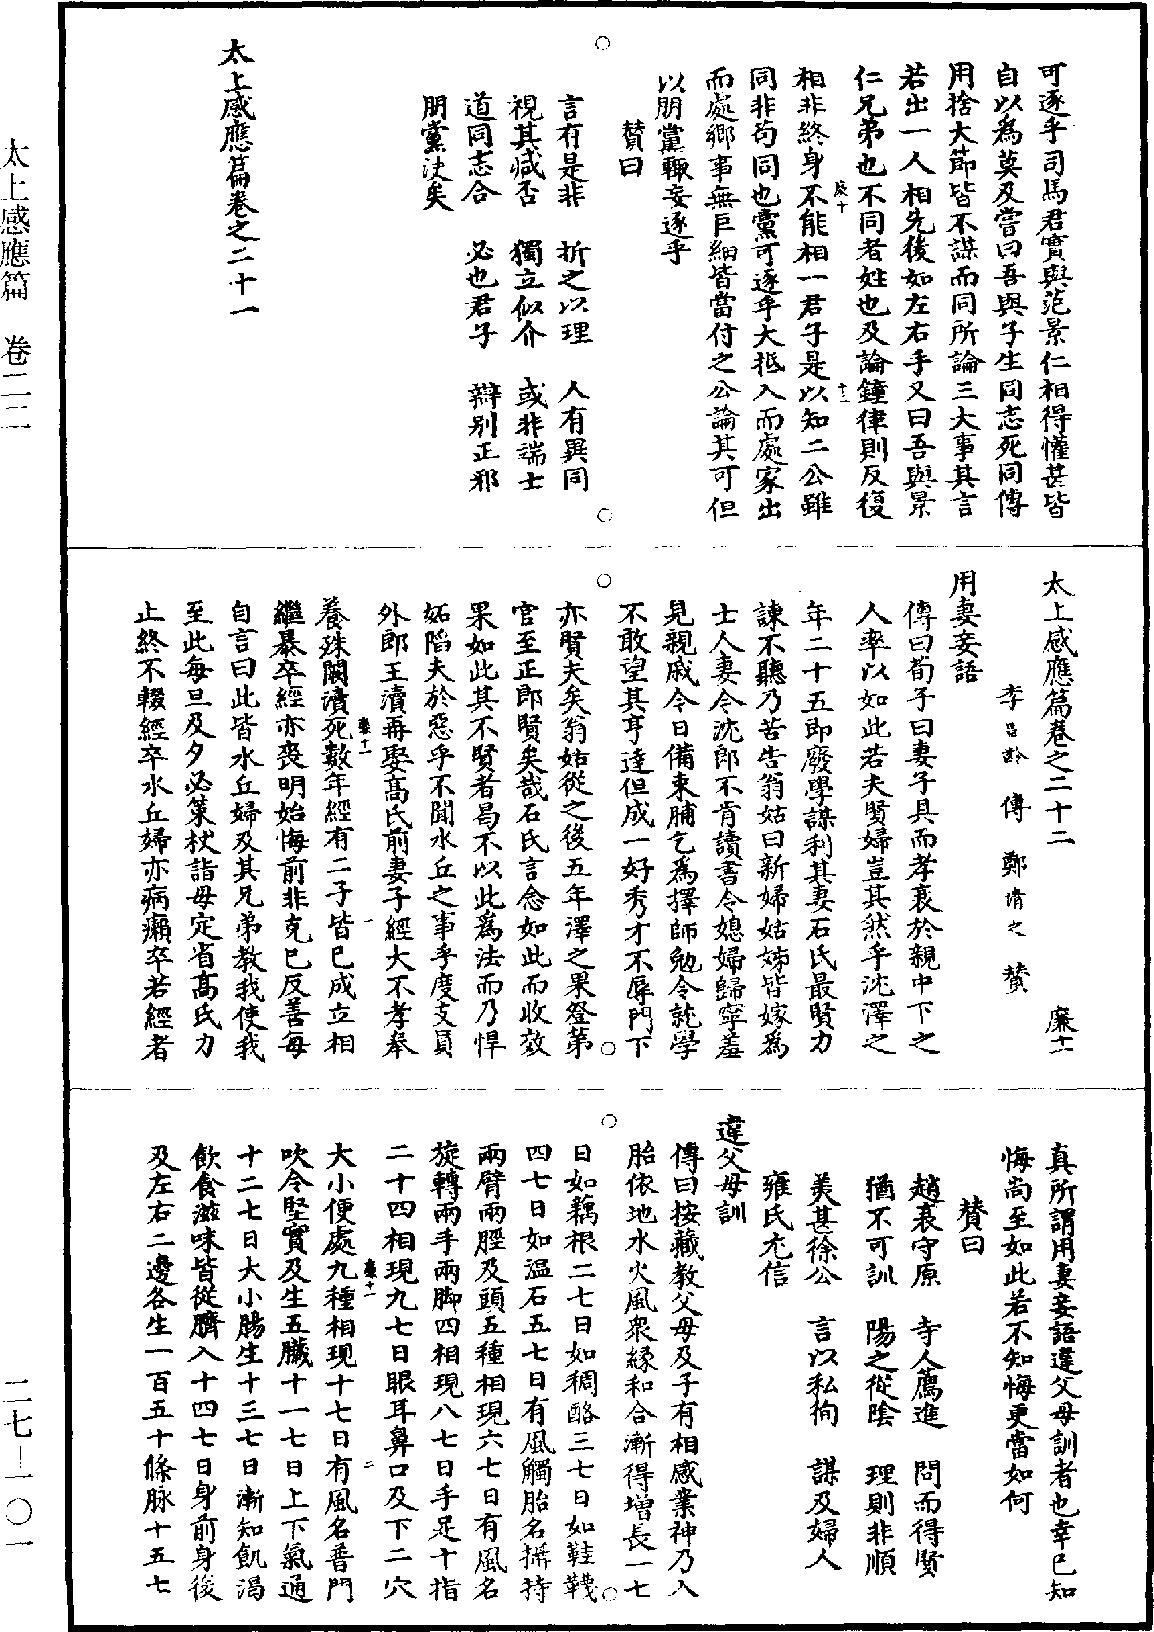 太上感應篇　卷二二
二七—一〇一
可逐乎司馬君實與范景仁相得懽甚皆
自以爲莫及嘗曰吾與子生同志死同傳
用捨大節皆不謀而同所論三大事其言
若出一人相先後如左右手又曰吾與景
仁兄弟也不同者姓也及論鐘律則反復
相非終身不能相一君子是以知二公雖
同非苟同也黨可逐乎大抵入而處家出
而處鄉事無巨細皆當付之公論其可但
以朋黨輒妄逐乎
贊曰
言有是非　折之以理　人有異同
視其臧否　獨立似介　或非端士
道同志合　必也君子　辯别正邪
朋黨决矣
太上感應篇卷之二十一
太上感應篇卷之二十二　廉十一
李昌齡　傳　鄭清之　贊
用妻妾語
傳曰荀子曰妻子具而孝衰於親中下之
人率以如此若夫賢婦豈其然乎沈澤之
年二十五即廢學謀利其妻石氏最賢力
諫不聽乃苦告翁姑曰新婦姑姊皆嫁爲
士人妻令沈郎不肯讀書令媳婦歸寧羞
見親戚今日備束脯乞爲擇師勉令就學
不敢望其亨達但成一好秀才不辱門下
亦賢夫矣翁姑從之後五年澤之果登第
官至正郎賢矣哉石氏言念如此而收效
果如此其不賢者曷不以此爲法而乃悍
妬陷夫於惡乎不聞水丘之事乎度支員
外郎王瀆再娶髙氏前妻子經大不孝奉
養殊闕瀆死數年經有二子皆已成立相
繼暴卒經亦喪明始悔前非克已反善每
自言曰此皆水丘婦及其兄弟教我使我
至此每旦及夕必策杖詣母定省髙氏力
止終不輟經卒水丘婦亦病癩卒若經者
真所謂用妻妾語違父母訓者也幸已知
悔尚至如此若不知悔更當如何
贊曰
趙衰守原　寺人薦進　問而得賢
猶不可訓　陽之從陰　理則非順
美甚徐公　言以私徇　謀及婦人
雍氏尤信
違父母訓
傳曰按藏教父母及子有相感業神乃入
胎依地水火風衆緣和合漸得增長一七
日如藕根二七日如稠酪三七日如鞋韈
四七日如温石五七日有風觸胎名攝持
兩臂兩脛及頭五種相現六七日有風名
旋轉兩手兩脚四相現八七日手足十指
二十四相現九七日眼耳鼻口及下二穴
大小便處九種相現十七日有風名普門
吹令堅實及生五臟十一七日上下氣通
十二七日大小腸生十三七日漸知飢渴
飲食滋味皆從臍入十四七日身前身後
及左右二邊各生一百五十條脉十五七